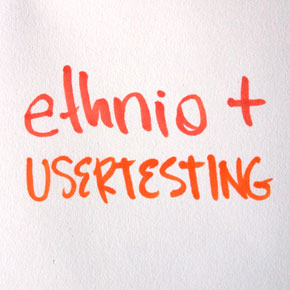 ethnio +
USERTESTING